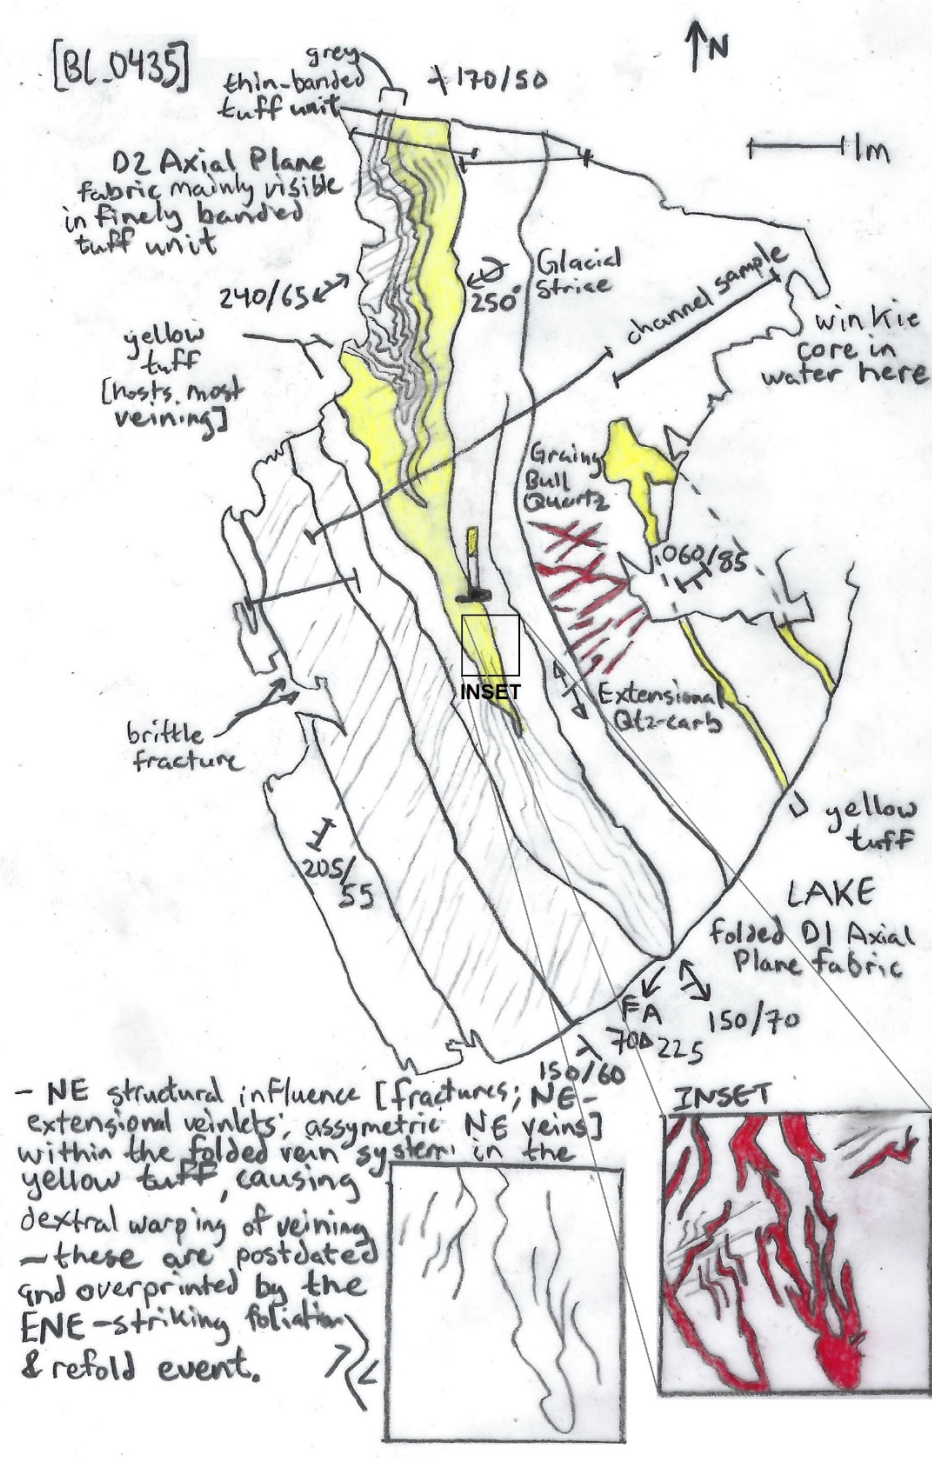 [BL_0435]
grey
thin-banded
tuff unit
170/50
N
1m
D2 Axial Plane
fabric mainly visible
in finely banded
tuff unit
240/65
250°
Glacial
Striae
channel sample
yellow
tuff
[hosts most
veining]
winkie
core in
water here
Grainy
Bull
Quartz
060/85
INSET
Extensional
Qtz-carb
brittle
fracture
205/
55
yellow
tuff
LAKE
folded D1 Axial
Plane fabric
FA
70
225
150/70
150/60
- NE structural influence [fractures; NE-
extensional veinlets; assymetric NE veins]
within the folded vein system in the
yellow tuff, causing
dextral warping of veining
- these are postdated
and overprinted by the
ENE-striking foliation
& refold event.
INSET